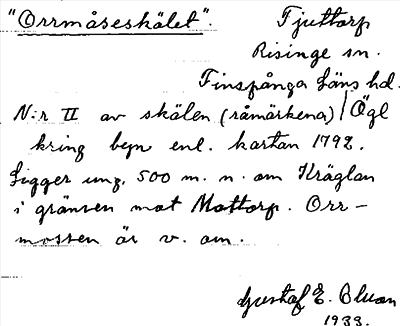 "Orrmåseskälet". Tjuttorp
Risinge sn.
Finspånga Läns hd.
N:r II av skälen (råmärkena) / Ägl
kring byn enl. kartan 1792.
Ligger ung. 500 m. n. om Kräglan
i gränsen mot Mottorp. Orr-
mossen är v. om.
Gustaf E. Bluon
1933.